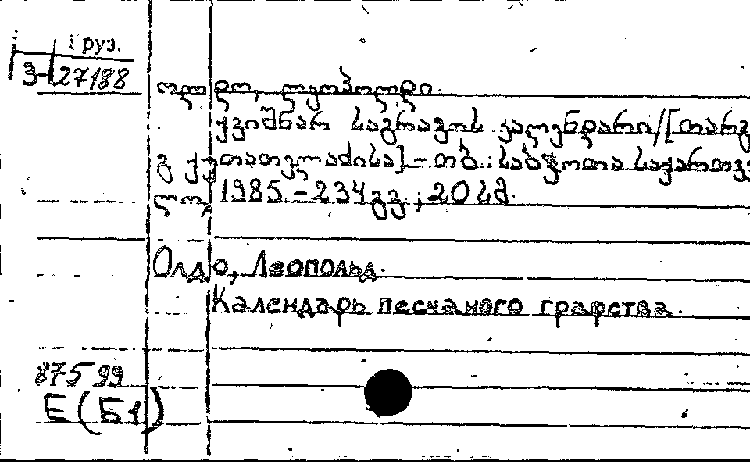 1 груз.
З-27188
ოლდო, ლეოპოლდი.
ქვიშნარ საგრაფოს კალენდარი/[თარგ
გ. ქუთათელაძისა].-თბ.: საბჭოთა საქართვე
ლო, 1985.-234გვ.; 20სმ.
Олдо, Леопольд.
Календарь песчаного графства.
87599
Е(Б1)